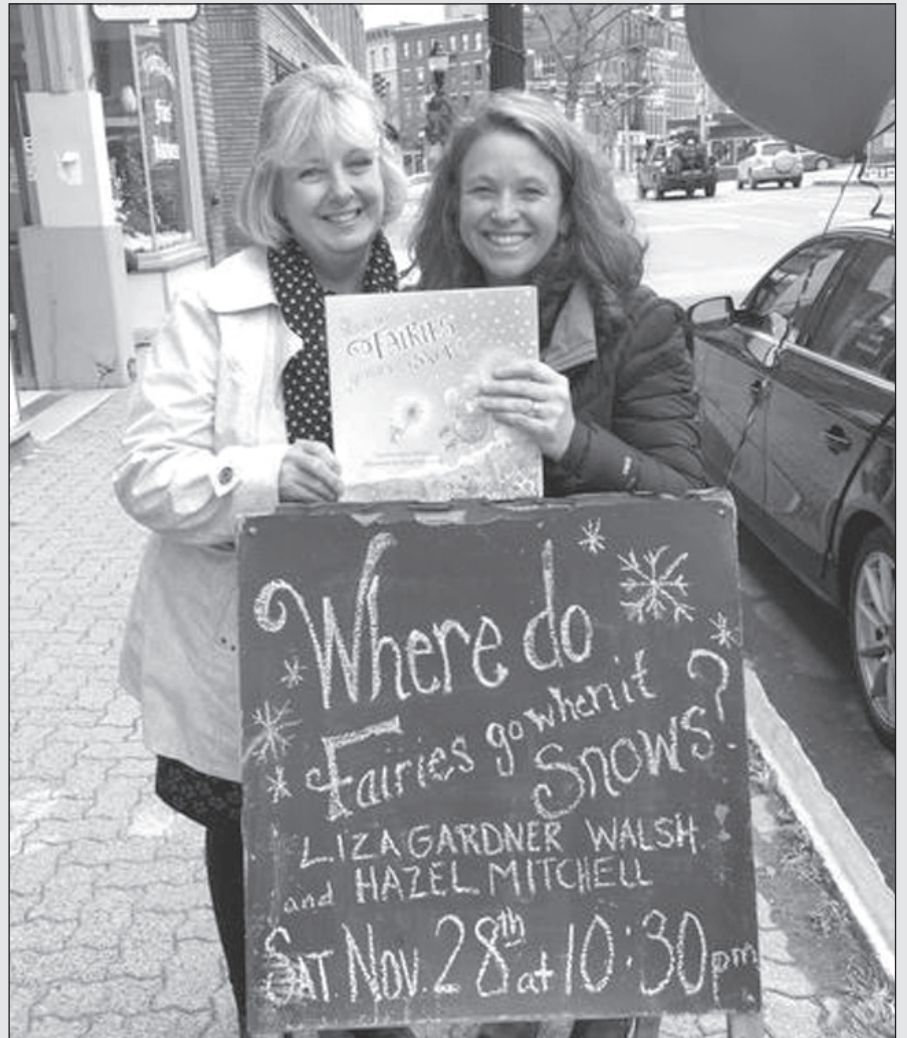 FAIRIES
Where do
Fairies go when it
Snows?
LIZA GARDNER WALSH
and HAZEL MITCHELL
SAT. NOV. 28th at 10:30 pm